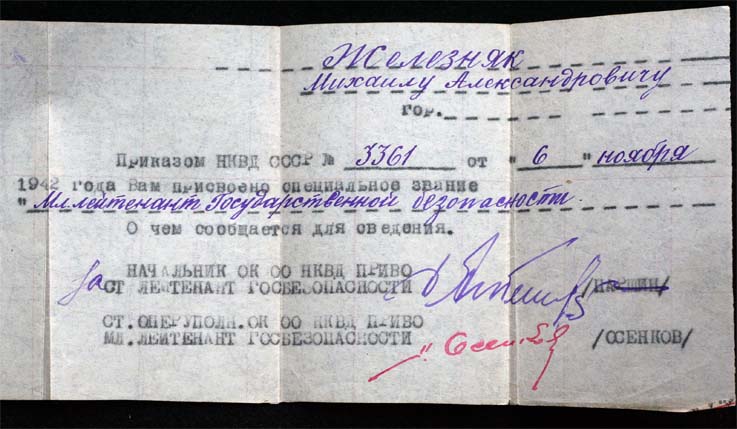 Железняк
Михаилу Александровичу
гор.
Приказом НКВД СССР № 3361 от "6" ноября
1942 года Вам присвоено специальное звание
"Мл. лейтенант Государственной безопасности
О чем сообщается для сведения.
НАЧАЛЬНИК ОК ОО НКВД ПРИВО
за СТ ЛЕЙТЕНАНТ ГОСБЕЗОПАСНОСТИ
СТ.ОПЕРУПОЛН.ОК ОО НКВД ПРИВО
МЛ.ЛЕЙТЕНАНТ ГОСБЕЗОПАСНОСТИ /ОСЕНКОВ/